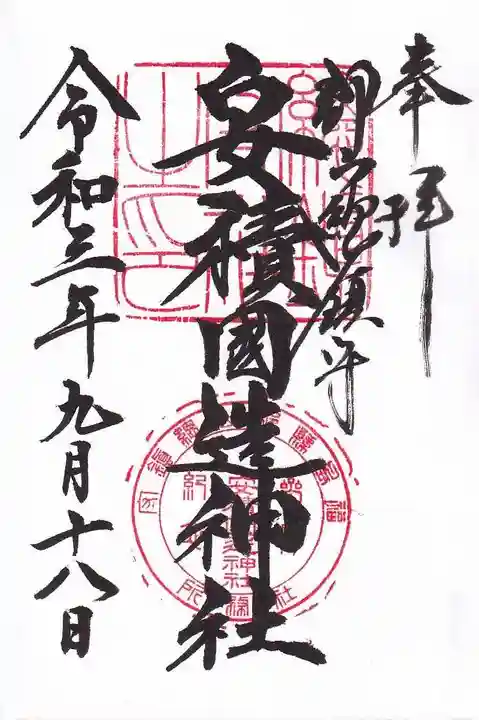 奉拝
郡山総鎮守
安積國造神社
令和三年九月十八日